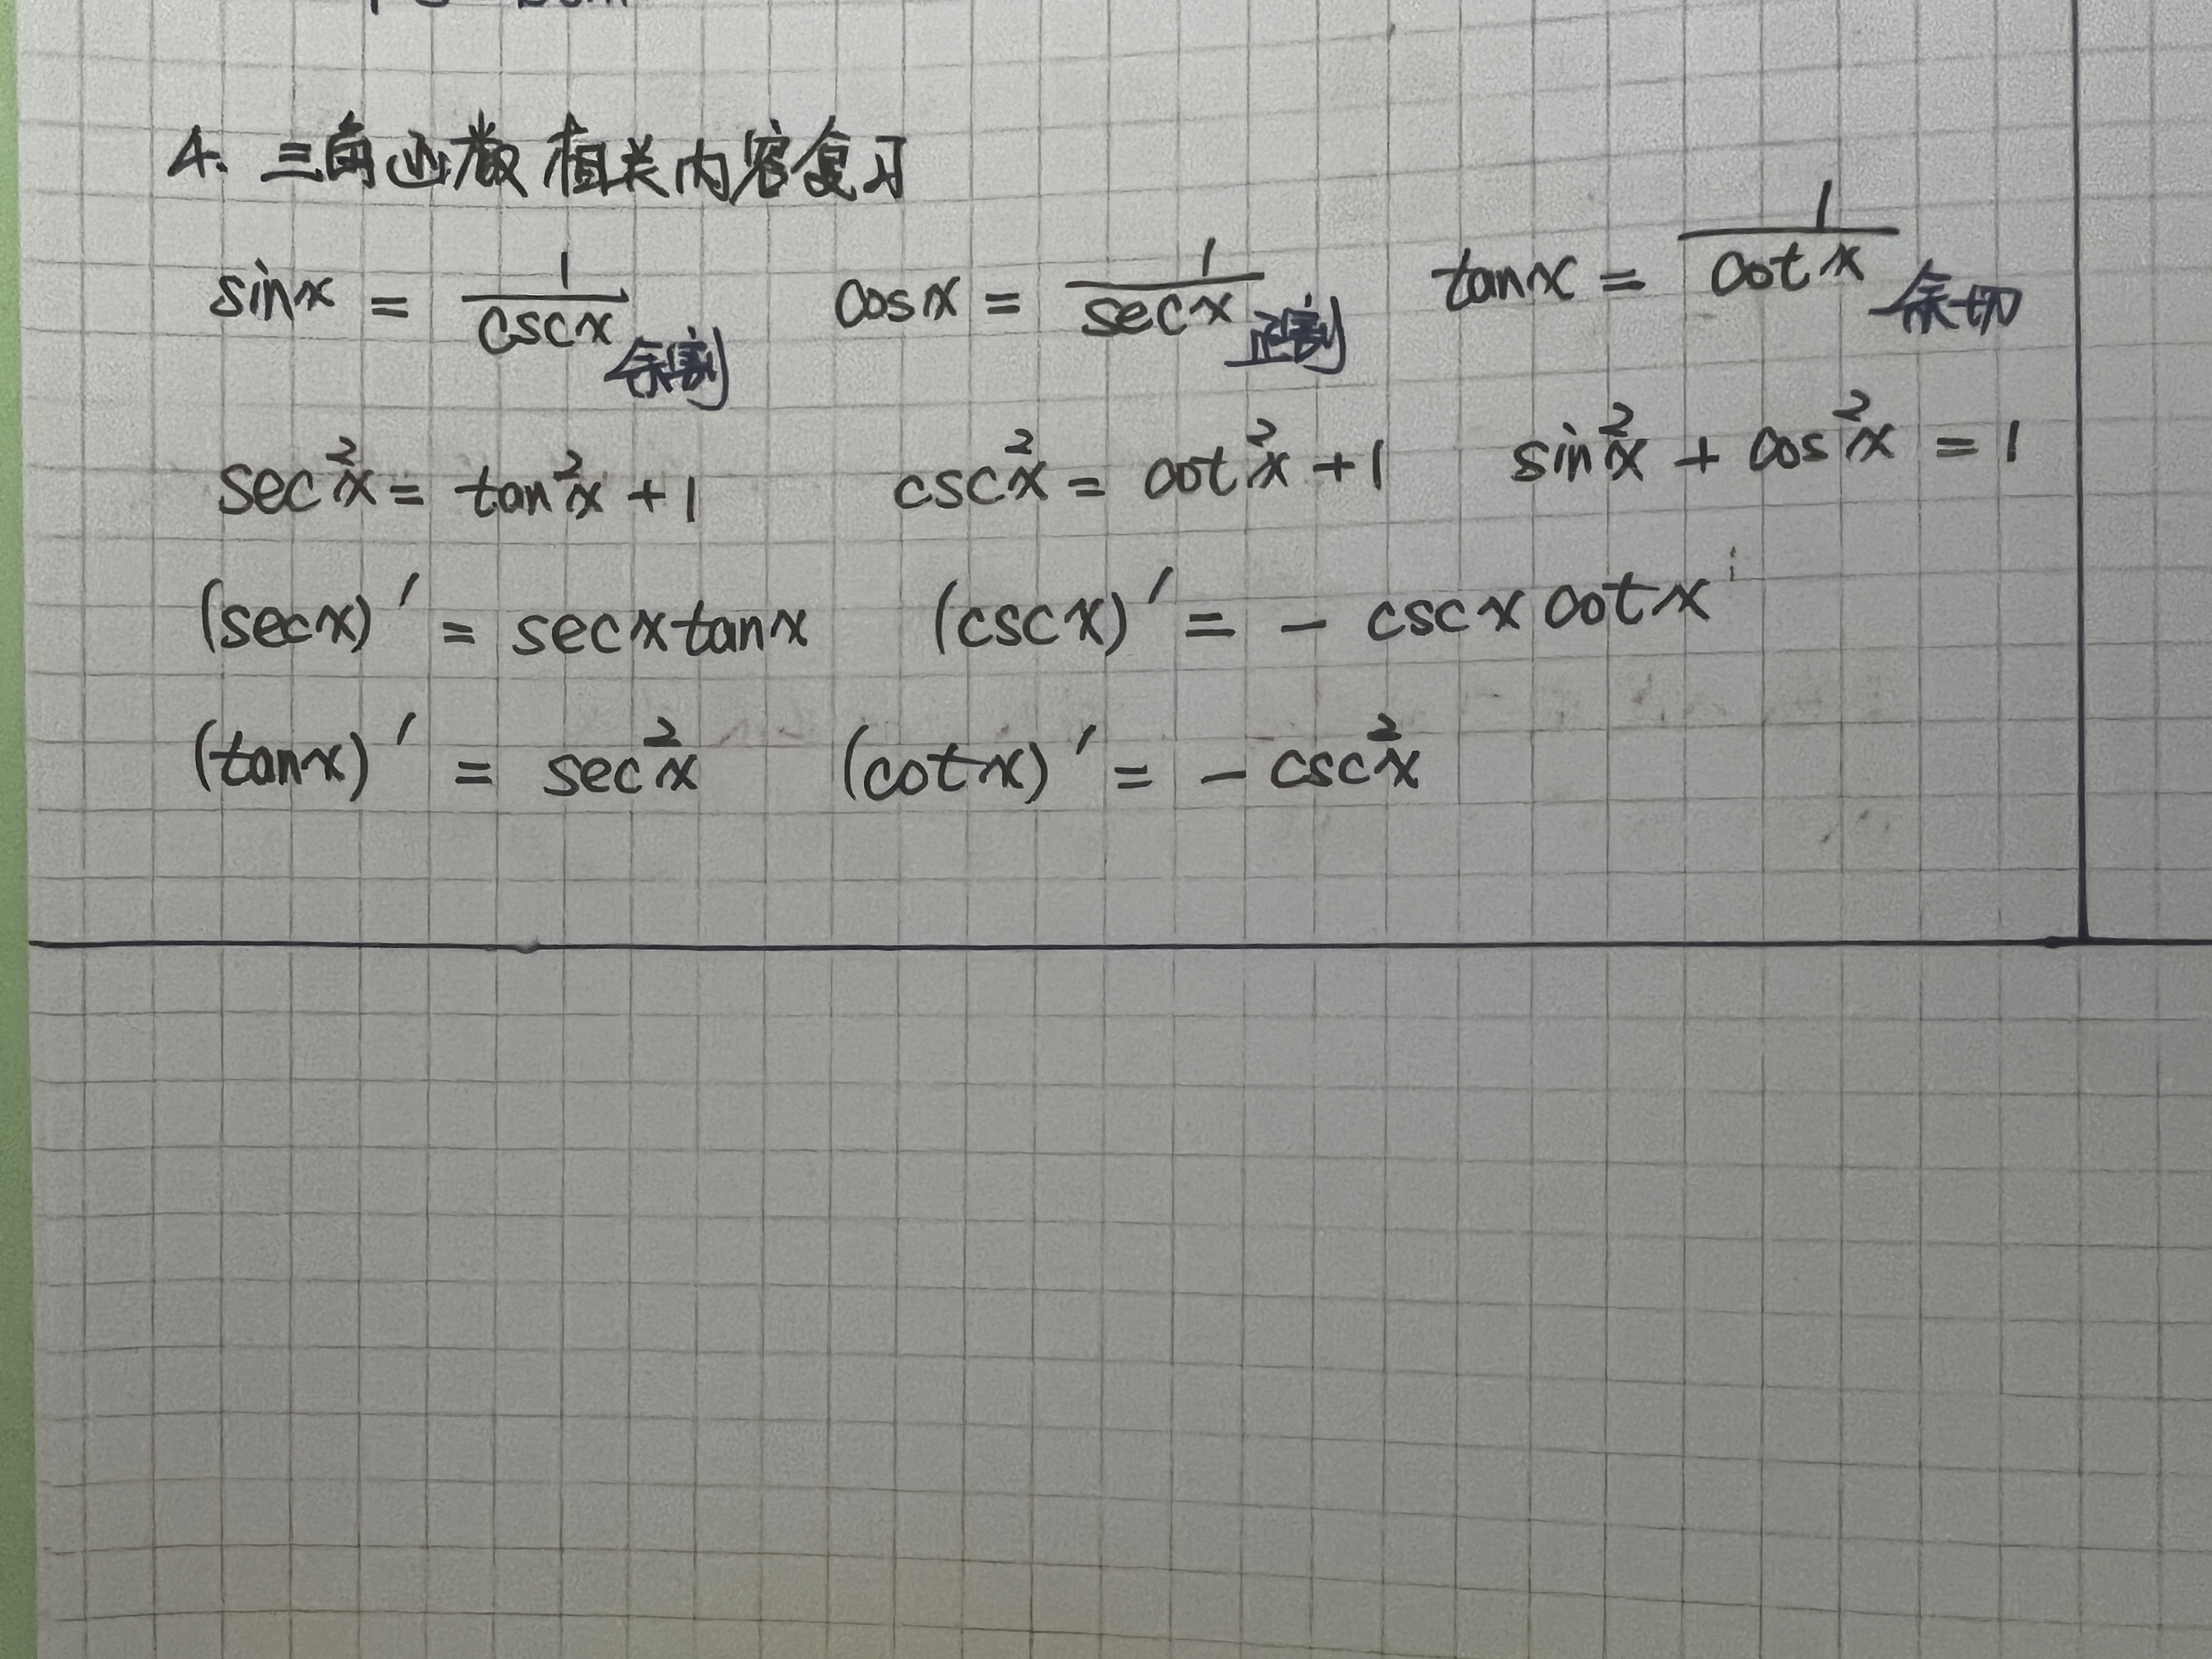 4. 三角函数相关内容复习
sinx = 1/cscx 余割 cosx = 1/secx 正割 tanx = 1/cotx 余切
sec²x = tan²x + 1 csc²x = cot²x + 1 sin²x + cos²x = 1
(secx)' = secxtanx (cscx)' = - cscxcotx
(tanx)' = sec²x (cotx)' = - csc²x